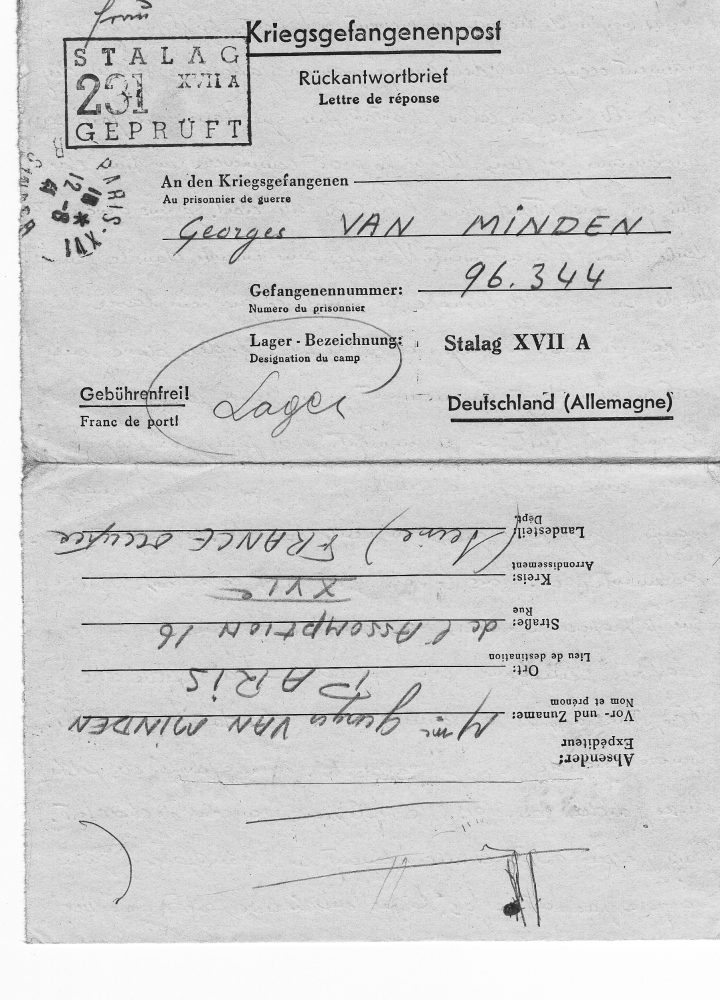 frau
Kriegsgefangenenpost
STALAG
231 XVII A
GEPRÜFT
Rückantwortbrief
Lettre de réponse
PARIS-XVI
18
12 -8
41
An den Kriegsgefangenen
Au prisonnier de guerre
Georges VAN MINDEN
Gefangenennummer: 96.344
Numero du prisonnier
Lager-Bezeichnung: Stalag XVII A
Designation du camp
Lager
Gebührenfrei! Deutschland (Allemagne)
Franc de port!
Absender:
Expéditeur
Vor- und Zuname: Mme Georges VAN MINDEN
Nom et prénom
Ort: PARIS
Lieu de destination
Straße: de l'Assomption 16
Rue
Kreis: XVIe
Arrondissement
Landesteil: (Seine) FRANCE occupée
Dépt.